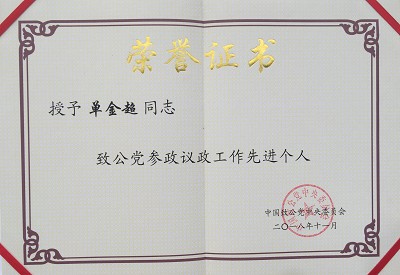 荣誉证书
授予 单金超 同志
致公党参政议政工作先进个人
中国致公党中央委员会
二〇一八年十一月